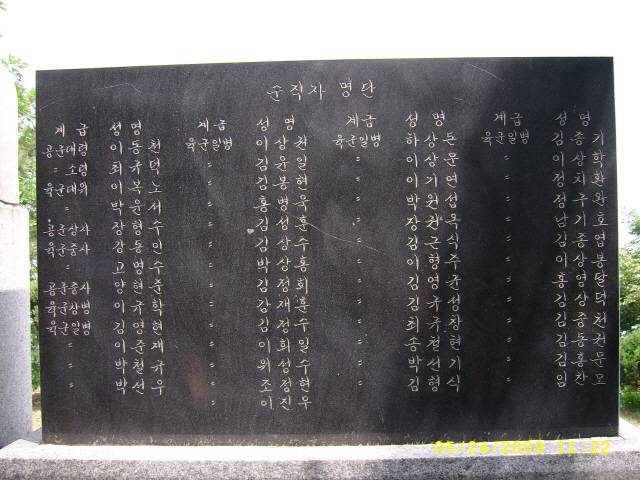 순직자 명단
계급 성명 계급 성명 계급 성명 계급 성명
공군대령 이동천 육군일병 이상권 육군일병 하상돈 육군일병 김종기
〃 소령 최규덕 〃 김윤일 〃 이상문 〃 이상학
육군대위 이복노 〃 김봉현 〃 이기연 〃 정치환
〃 박윤서 〃 홍병욱 〃 박원섭 〃 정주완
공군상사 장형수 〃 김성훈 〃 장권옥 〃 남기호
육군중사 강동인 〃 김상수 〃 김근식 〃 김종엽
〃 고명수 〃 박상홍 〃 이형주 〃 이상봉
공군중사 양현준 〃 김정희 〃 〃 홍영달
육군상병 이규학 〃 강재훈 〃 김규성 〃 김상덕
육군일병 김영현 〃 김정수 〃 최규창 〃 김중천
〃 이준재 〃 이희일 〃 송철현 〃 김동권
〃 박철규 〃 위성수 〃 박선기 〃 김홍문
〃 박선우 〃 조정현 〃 김형식 〃 임찬모
이진우
05/24/2009 11:22